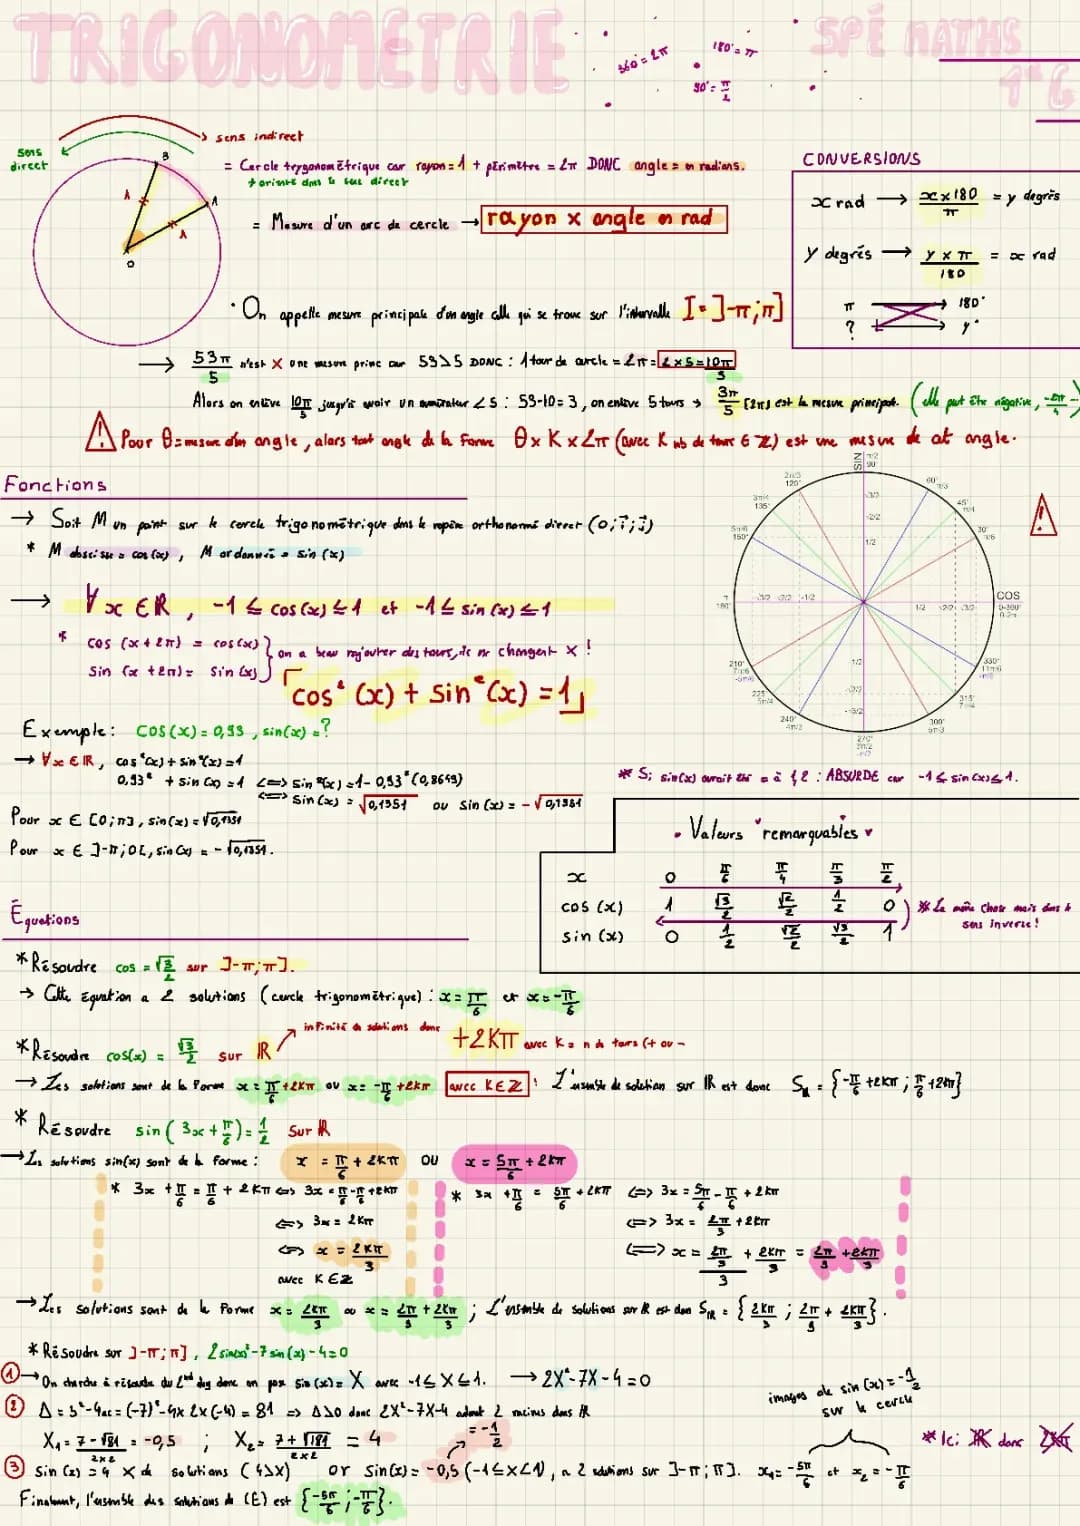 TRIGONOMÉTRIE
SPÉ MATHS
1°G
360° = 2π
180° = π
90° = π/2
sens direct
sens indirect
B
A
1
1
O
= Cercle trygonométrique car rayon = 1 + périmètre = 2π DONC angle = en radians.
+ orienté dans le sens direct
= Mesure d'un arc de cercle → rayon x angle en rad
CONVERSIONS
x rad → x × 180 / π = y degrés
y degrés → y × π / 180 = x rad
π → 180°
? y°
· On appelle mesure principale d'un angle celle qui se trouve sur l'intervalle I = ]-π;π]
→ 53π/5 n'est X une mesure princ car 53>5 DONC : 1 tour de cercle = 2π = 2×5 = 10π/5
Alors on enlève 10π/5 jusqu'à avoir un numérateur <5 : 53-10=3, on enlève 5 tours → 3π/5 [2π] est la mesure principale. (elle peut être négative,
Pour θ = mesure d'un angle, alors tout angle de la forme θ × K × 2π (avec K nb de tours ∈ Z) est une mesure de cet angle.
Fonctions
→ Soit M un point sur le cercle trigonométrique dans le repère orthonormé direct (O;i;j)
* M abscisse = cos(x), M ordonnée = sin(x)
→ ∀x ∈ R, -1 ≤ cos(x) ≤ 1 et -1 ≤ sin(x) ≤ 1
* cos (x+2π) = cos(x)
sin (x+2π) = sin(x)
on a beau rajouter des tours, ils ne changent X !
cos²(x) + sin²(x) = 1
SIN
π/2
90°
2π/3
120°
3π/4
135°
5π/6
150°
π
180°
60°
π/3
45°
π/4
30°
π/6
COS
0-360°
0-2π
√3/2
√2/2
1/2
-√3/2 -√2/2 -1/2
1/2 √2/2 √3/2
210°
7π/6
-5π/6
225°
5π/4
240°
4π/3
270°
3π/2
-π/2
300°
5π/3
315°
7π/4
330°
11π/6
-π/6
Exemple : cos(x) = 0,93, sin(x) = ?
→ ∀x ∈ R, cos²(x) + sin²(x) = 1
0,93² + sin(x) = 1 <=> sin²(x) = 1 - 0,93² (0,8649)
<=> sin(x) = √0,1351 ou sin(x) = -√0,1351
Pour x ∈ [0;π], sin(x) = √0,1351
Pour x ∈ ]-π;0[, sin(x) = -√0,1351.
* Si sin(x) aurait été = à 1,2 : ABSURDE car -1 ≤ sin(x) ≤ 1.
Valeurs "remarquables"
x 0 π/6 π/4 π/3 π/2
cos (x) 1 √3/2 √2/2 1/2 0
sin (x) 0 1/2 √2/2 √3/2 1
* La même chose mais dans le sens inverse !
Équations
* Résoudre cos = √3/2 sur ]-π;π].
→ Cette équation a 2 solutions (cercle trigonométrique) : x = π/6 et x = -π/6
* Résoudre cos(x) = √3/2 sur R
infinité de solutions donc +2Kπ avec K = n de tours (+ ou -
→ Les solutions sont de la forme x = π/6 + 2Kπ ou x = -π/6 + 2Kπ avec K∈Z ! L'ensemble de solution sur R est donc S_R = {-π/6 + 2Kπ ; π/6 + 2Kπ}
* Résoudre sin(3x + π/6) = 1/2 sur R
→ Les solutions sin(x) sont de la forme : x = π/6 + 2Kπ OU x = 5π/6 + 2Kπ
* 3x + π/6 = π/6 + 2Kπ <=> 3x = π/6 - π/6 + 2Kπ
<=> 3x = 2Kπ
<=> x = 2Kπ/3
avec K∈Z
* 3x + π/6 = 5π/6 + 2Kπ <=> 3x = 5π/6 - π/6 + 2Kπ
<=> 3x = 2π/3 + 2Kπ
<=> x = 2π/3/3 + 2Kπ/3 = 2π/3 + 2Kπ/3
→ Les solutions sont de la forme x = 2Kπ/3 ou x = 2π/3 + 2Kπ/3 ; L'ensemble de solutions sur R est donc S_R = {2Kπ/3 ; 2π/9 + 2Kπ/3}.
* Résoudre sur ]-π;π], 2sin(x)² - 7sin(x) - 4 = 0
① → On cherche à résoudre du 2nd deg donc on pose sin(x) = X avec -1 ≤ X ≤ 1. → 2X² - 7X - 4 = 0
② Δ = b² - 4ac = (-7)² - 4 × 2 × (-4) = 81 => Δ>0 donc 2X² - 7X - 4 admet 2 racines dans R
X₁ = 7 - √81 / 2×2 = -0,5 ; X₂ = 7 + √81 / 2×2 = 4
= -1/2
③ sin(x) = 4 X de solutions (4>X) or sin(x) = -0,5 (-1≤X≤1), a 2 solutions sur ]-π;π]. x₁ = -5π/6 et x₂ = -π/6
images de sin(x) = -1/2
sur le cercle
* Ici R donc 2Kπ
Finalement, l'ensemble des solutions de (E) est {-5π/6 ; -π/6}.